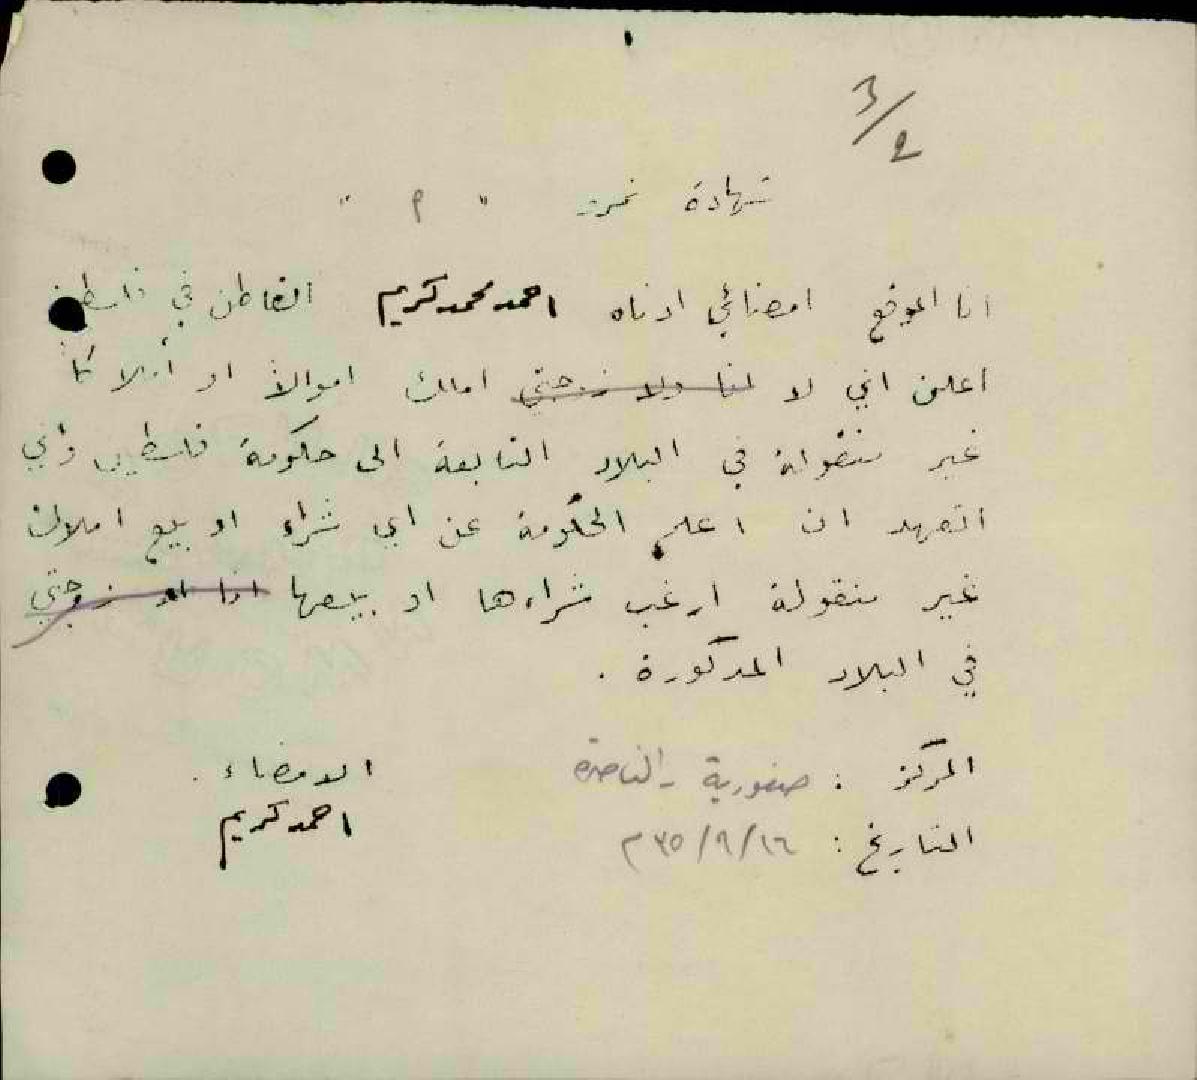 3/2
شهادة نمرة " م "
انا الموقع امضائي ادناه احمد محمد كريم القاطن في فلسطين
اعلن اني لا انا ولا زوجتي املك اموالاً او أملاكاً
غير منقولة في البلاد التابعة الى حكومة فلسطين واني
اتعهد ان اعلم الحكومة عن اي شراء او بيع املاك
غير منقولة ارغب شراءها او بيعها انا او زوجتي
في البلاد المذكورة .
المركز : صفورية - الناصرة
الامضاء .
احمد كريم
التاريخ : ١٦/٩/٩٣٥ م